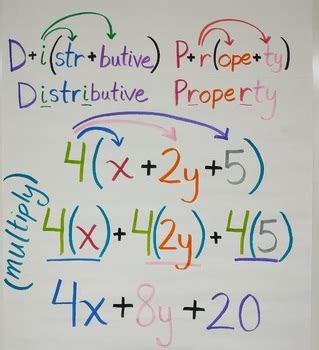 D+i(str+butive) P+r(ope+ty)
Distributive Property
4(x+2y+5)
(multiply)
4(x)+4(2y)+4(5)
4x+8y+20